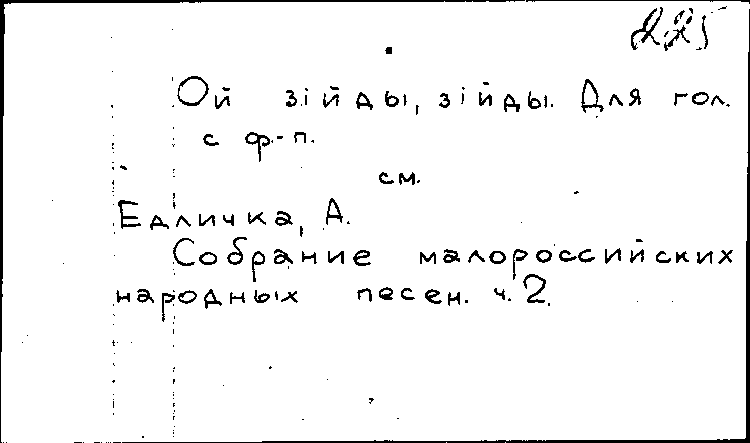 225
Ой зійды, зійды. Для гол.
с ф.-п.
см.
Едличка, А.
Собрание малороссийских
народных песен. ч. 2.